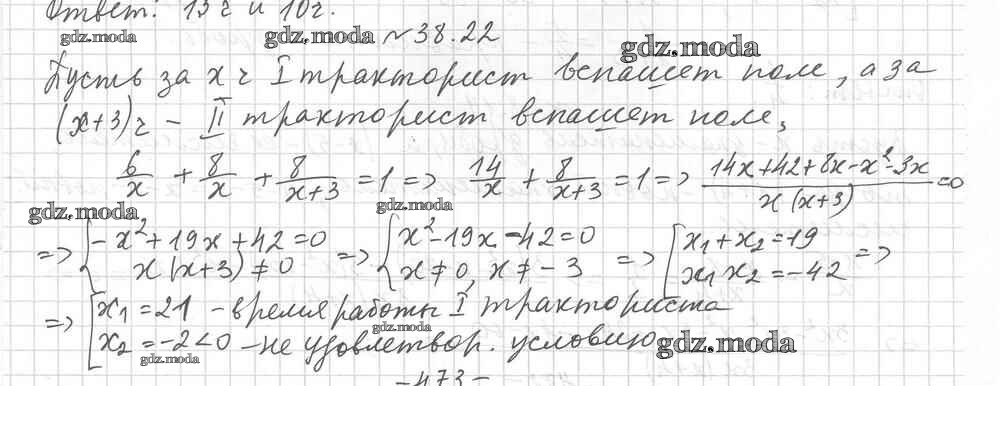 Ответ: 13 ч и 10 ч.
gdz.moda gdz.moda №38.22 gdz.moda
Пусть за x ч I тракторист вспашет поле, а за
(x+3) ч – II тракторист вспашет поле,
6/x + 8/x + 8/(x+3) = 1 => 14/x + 8/(x+3) = 1 => (14x+42+8x-x²-3x)/(x(x+3)) = 0
gdz.moda gdz.moda
=> { -x²+19x+42=0 => { x²-19x-42=0 => [ x₁+x₂=19 =>
x(x+3)≠0 x≠0, x≠-3 x₁x₂=-42
=> [ x₁=21 – время работы I тракториста
gdz.moda
x₂=-2<0 – не удовлетвор. условию gdz.moda
gdz.moda
-473-